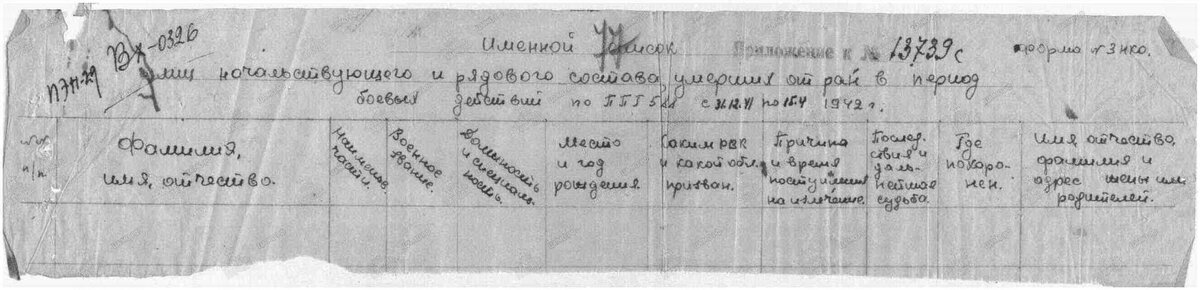 Вх-0326
ПЭП-29
77
Именной список Приложение к № 13739с форма №3 НКО.
лиц начальствующего и рядового состава, умерших от ран в период
боевых действий по ППГ 5 с по 15.4 1942 г.
№№ п/п
Фамилия, имя, отчество.
Наименов. части.
Военное звание.
Должность и специальность.
Место и год рождения
Каким РВК и какой обл. призван.
Причина и время поступления на излечение.
Последствия и дальнейшая судьба.
Где похоронен.
Имя, отчество, фамилия и адрес жены или родителей.